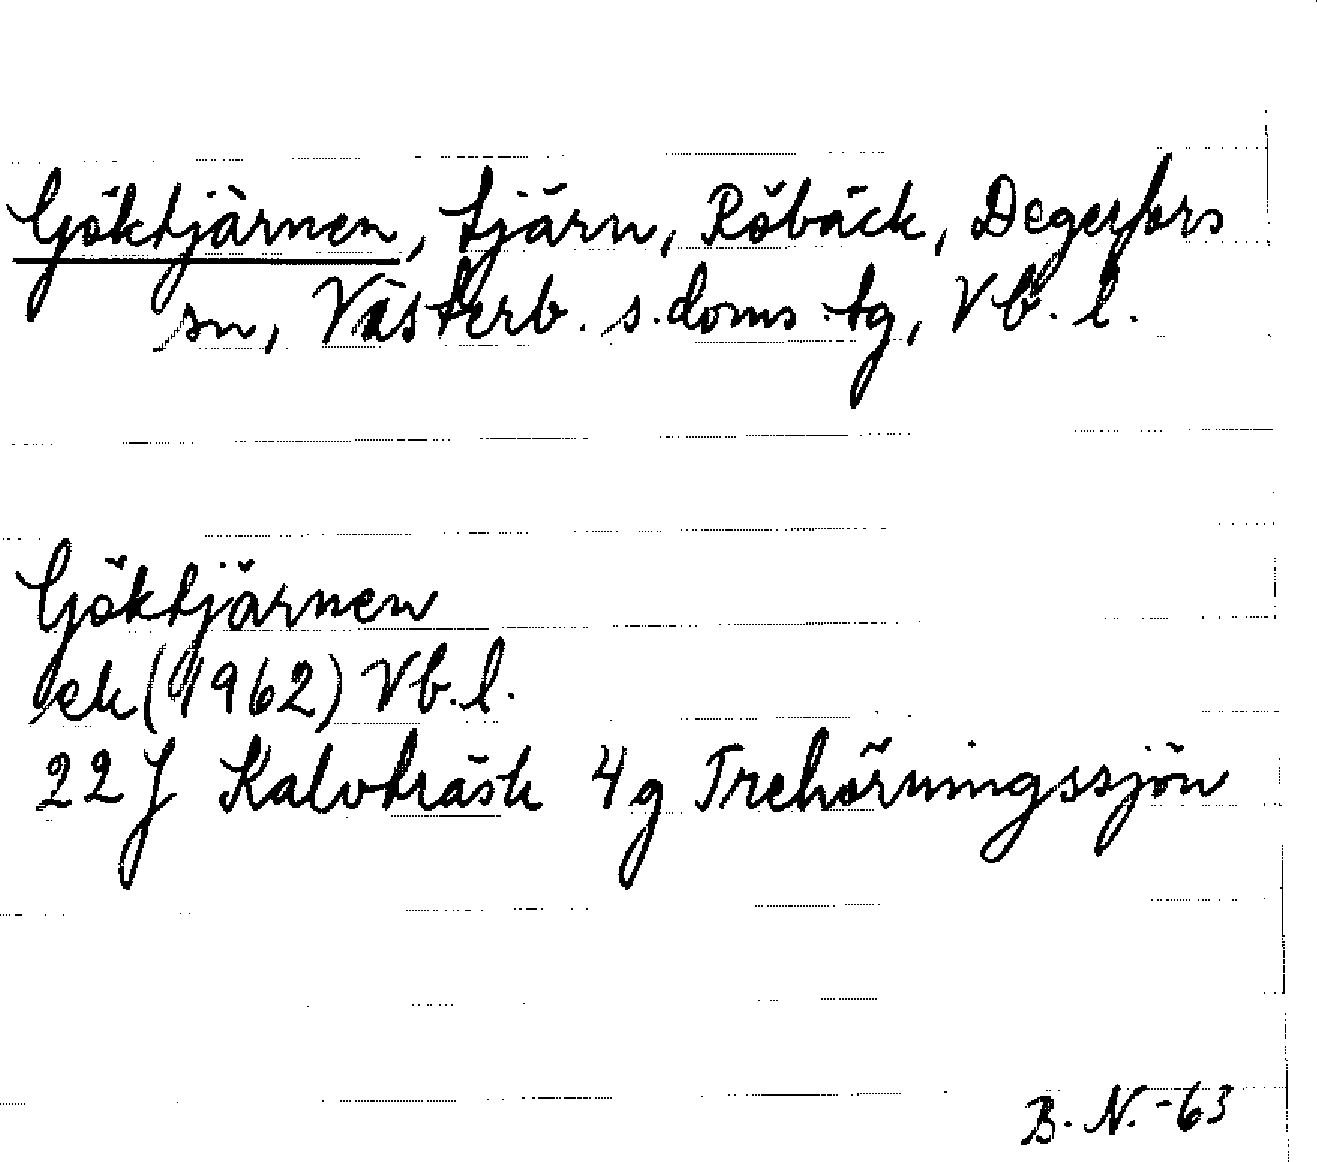 Göktjärnen, tjärn, Röbäck, Degerfors
sn, Västerb. s. doms. tg, Vb. l.
Göktjärnen
ek (1962) Vb. l.
22 J Kalvträsk 4g Trehörningssjön
B. N. -63